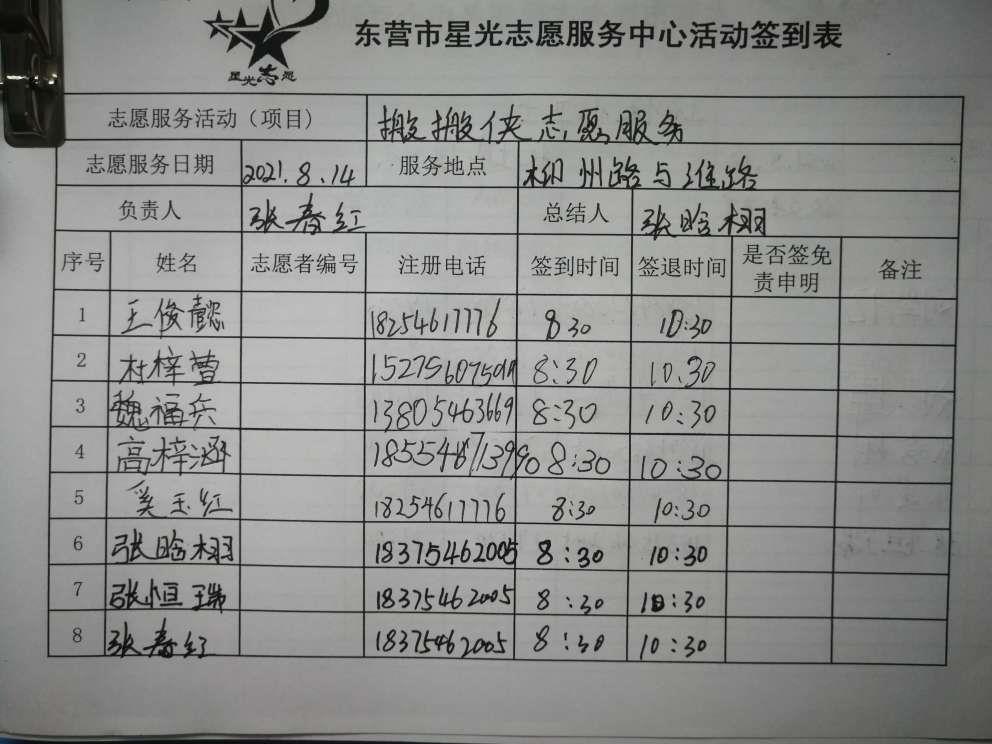 星光志愿
东营市星光志愿服务中心活动签到表
志愿服务活动（项目） 搬搬侠志愿服务
志愿服务日期 2021.8.14 服务地点 柳州路与淮路
负责人 张春红 总结人 张晗栩
序号 姓名 志愿者编号 注册电话 签到时间 签退时间 是否签免责申明 备注
1 王俊懿 18254617776 8 30 10:30
2 杜梓萱 8:30 10.30
3 魏福兵 13805463669 8:30 10:30
4 高梓涵 8:30 10:30
5 奚玉红 18254617776 8:30 10:30
6 张晗栩 18375462005 8:30 10:30
7 张恒瑞 18375462005 8:30 10:30
8 张春红 18375462005 8:30 10:30